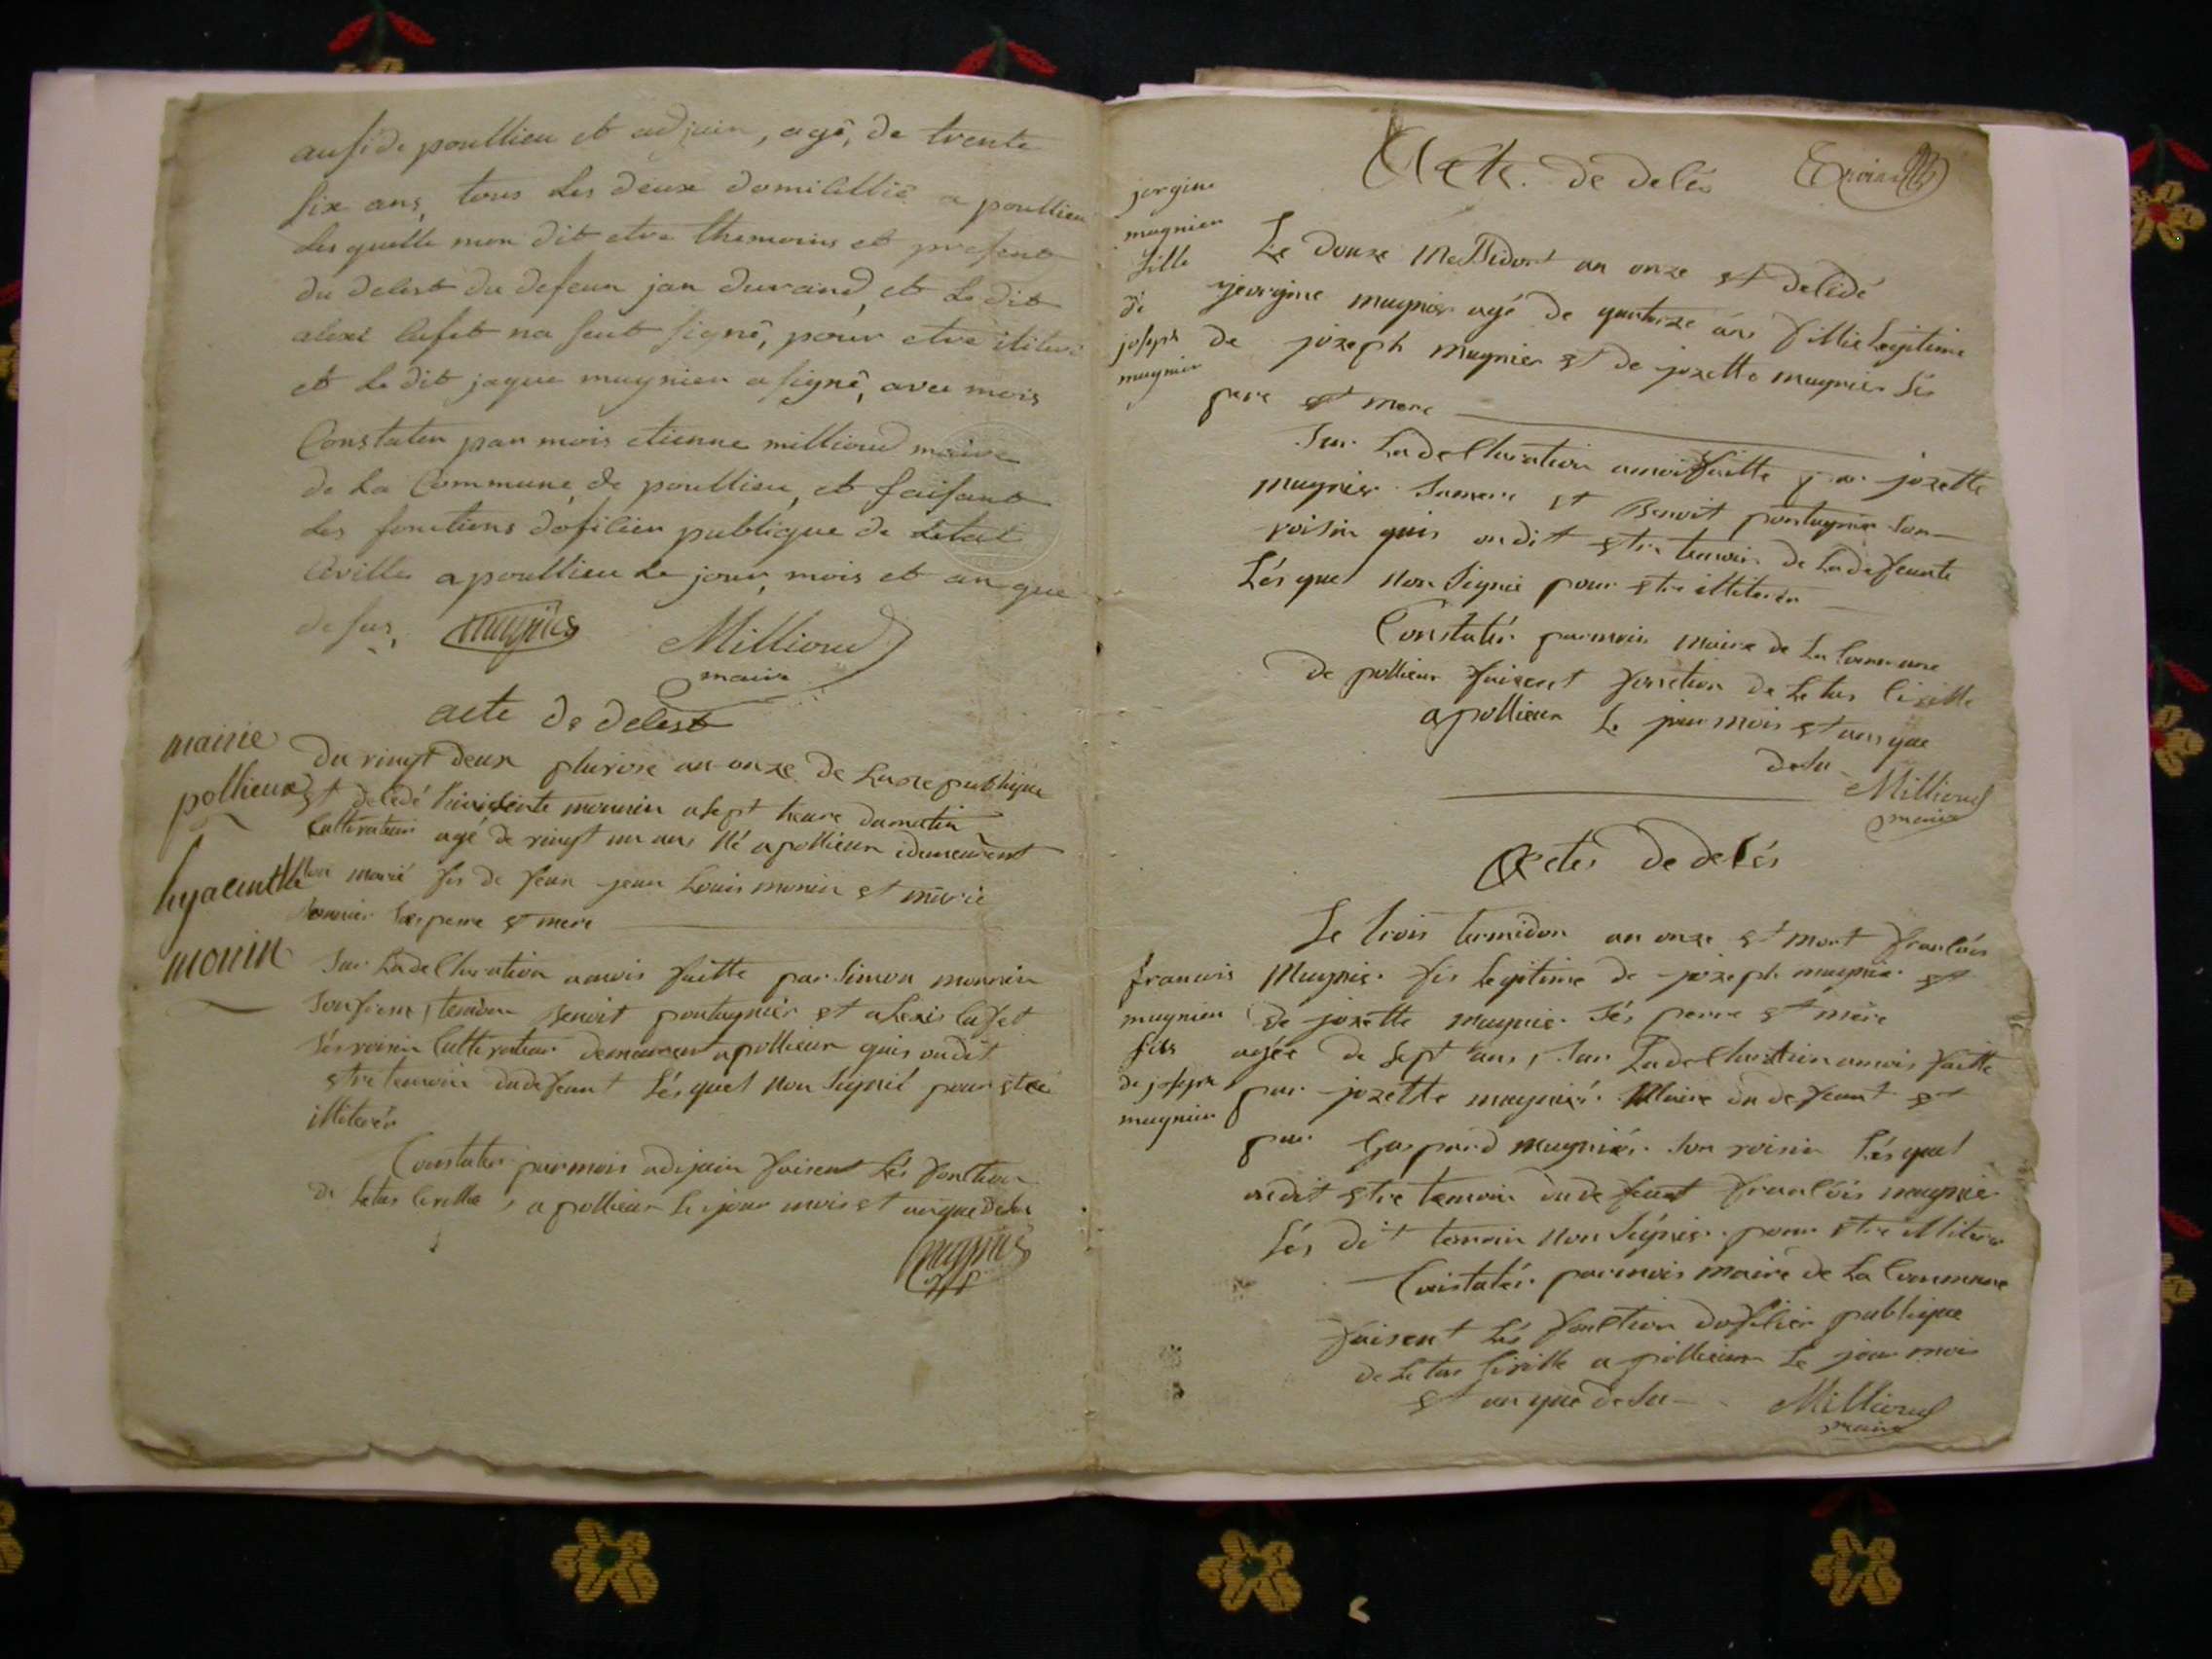 ausi de poullieu et adjoin, agé, de trente
six ans, tous les deux domicillié a poullieu
les quelle mon dit etre themoins et present
du delest du defeun jan durand, et le dit
alexi lafet na seut signé, pour etre iliteré
et le dit jaque mugnier a signé, avec mois
Constater par mois etienne millioud maire
de la Commune de poullieu, et faisant
les fonctions dofisier publique de Letat
Civille a poullieu le jour, mois et an que
desus, mugnier Millioud
maire
acte de delest
mairie
pollieux
hyacinthe
monin
Du vingt deux pluviose an onze de La republique
et dessedé monnin a sept heure du matin
Cultivateur agé de vingt un ans né a pollieux
non marié fis de feun jean Louis monin et marie
ses perre et mere
Sur La declluration a mois faitte par Simon monnin
son frere, temoin Benoit pontagnier et alexis lafet
sés voisin Cultivateur demeurent a pollieux quis on dit
etre temoin du defeunt Lésquel non Signié pour etre
illiterér
Constater par mois adjoin faisent Lés fonction
de Letas Civille, a pollieux Le jour mois et an que desu
mugnier
Acte de delés
jorgine
mugnier
fille
di
joseph
mugnier
Le douze Messidort an onze et delidé
jeorgine mugnier agé de quatorze ans fillie Legitime
de jozeph mugnier et de jozette mugnier sés
pere et mere
Sur La declluration a mois faitte par jozette
mugnier sa mere et Benoit pontagnier son
voisin quis on dit etre temoin de La defeunte
Lésquel non Signié pour etre illiterér
Constatér par mois maire de La Commune
de pollieux faisent fonction de Letas Civille
a pollieux Le jour mois et ans que
desu Millioud
maire
Actes de delés
francois
mugnier
fils
de joseph
mugnier
Le trois termidor an onze et mort francois
Mugnier fis Legitime de jozeph mugnier et
de jozette mugnier sés perre et mére
agée de sept ans, sur La declluration a mois faitte
par jozette mugniér Maire du defeunt et
par Gaspard mugniér son voisin Lésquel
on dit etre temoin du defeunt francois mugnier
Lés dit temoin non Signier pour etre illiterer
Constatér par mois maire de La Commune
faisent Lés fonction dofisier publique
de Letas Civille a pollieux Le jour mois
et an que desu Millioud
maire